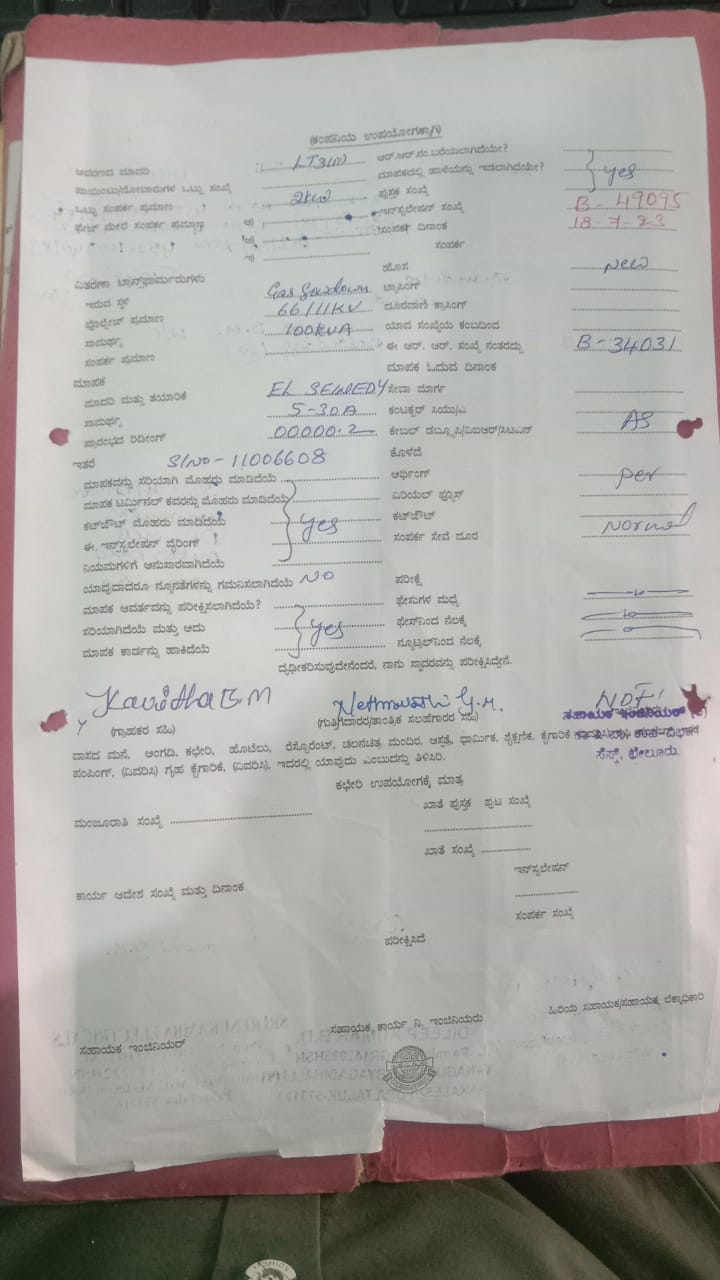 (ಕಂಪನಿಯ ಉಪಯೋಗಕ್ಕಾಗಿ)
ಆವರಣದ ಮಾದರಿ LT3(ii) ಆರ್.ಆರ್.ನಂ.ಬರೆಯಲಾಗಿದೆಯೇ?
ಪಾಯಿಂಟು/ಮೋಟಾರುಗಳ ಒಟ್ಟು ಸಂಖ್ಯೆ ಮಾಪಕದಲ್ಲಿ ಹಾಳೆಯನ್ನು ಇಡಲಾಗಿದೆಯೇ? yes
ಒಟ್ಟು ಸಂಪರ್ಕ ಪ್ರಮಾಣ 2kw ಪುಸ್ತಕ ಸಂಖ್ಯೆ
ಫೇಸ್ ಮೇಲೆ ಸಂಪರ್ಕ ಪ್ರಮಾಣ ಎ) ಇನ್‌ಸ್ಟಲೇಷನ್ ಸಂಖ್ಯೆ B-49095
ಬಿ) ಸಂಪರ್ಕ ದಿನಾಂಕ 18-7-23
ಸಂಪರ್ಕ
ವಿತರಣಾ ಟ್ರಾನ್ಸ್‌ಫಾರ್ಮರುಗಳು ಹೊಸ New
ಇರುವ ಸ್ಥಳ Gas Gowdown ಟ್ಯಾಪಿಂಗ್
ವೋಲ್ಟೇಜ್ ಪ್ರಮಾಣ 66/11KV ದೂರವಾಣಿ ಕ್ರಾಸಿಂಗ್
ಸಾಮರ್ಥ್ಯ 100KVA ಯಾವ ಸಂಖ್ಯೆಯ ಕಂಬದಿಂದ
ಸಂಪರ್ಕ ಪ್ರಮಾಣ ಈ ಆರ್. ಆರ್. ಸಂಖ್ಯೆ ನಂತರದ್ದು B-34031
ಮಾಪಕ ಮಾಪಕ ಓದುವ ದಿನಾಂಕ
ಮಾದರಿ ಮತ್ತು ತಯಾರಿಕೆ ಸೇವಾ ಮಾರ್ಗ
ಸಾಮರ್ಥ್ಯ 5-30A ಕಂಡಕ್ಟರ್ ಸಿಯು/ಎ
ಪ್ರಾರಂಭದ ರಿಡೀಂಗ್ 00000.2 ಕೇಬಲ್ ಡಬ್ಲ್ಯೂಪಿ/ವಿಐಆರ್/ಸಿಟಿಎಸ್ AS
ಇತರೆ Sl No - 11006608 ಕೊಳವೆ
ಮಾಪಕವನ್ನು ಸರಿಯಾಗಿ ಮೊಹರು ಮಾಡಿದೆಯೆ ಆರ್ಥಿಂಗ್ per
ಮಾಪಕ ಟರ್ಮಿನಲ್ ಕವರನ್ನು ಮೊಹರು ಮಾಡಿದೆಯೆ ಏರಿಯಲ್ ಫ್ಯೂಸ್
ಕಟ್‌ಔಟ್ ಮೊಹರು ಮಾಡಿದೆಯೆ yes ಕಟ್‌ಔಟ್
ಈ ಇನ್‌ಸ್ಟಲೇಷನ್ ವೈರಿಂಗ್ ಸಂಪರ್ಕ ಸೇವೆ ದೂರ Normal
ನಿಯಮಗಳಿಗೆ ಅನುಸಾರವಾಗಿದೆಯೆ
ಯಾವುದಾದರೂ ನ್ಯೂನತೆಗಳನ್ನು ಗಮನಿಸಲಾಗಿದೆಯೆ NO ಪರೀಕ್ಷೆ
ಮಾಪಕ ಆವರ್ತವನ್ನು ಪರೀಕ್ಷಿಸಲಾಗಿದೆಯೆ? ಫೇಸುಗಳ ಮಧ್ಯೆ
ಸರಿಯಾಗಿದೆಯೆ ಮತ್ತು ಅದು yes ಫೇಸ್‌ನಿಂದ ನೆಲಕ್ಕೆ
ಮಾಪಕ ಕಾರ್ಡನ್ನು ಹಾಕಿದೆಯೆ ನ್ಯೂಟ್ರಲ್‌ನಿಂದ ನೆಲಕ್ಕೆ
ದೃಢೀಕರಿಸುವುದೇನೆಂದರೆ, ನಾನು ಸ್ಥಾವರವನ್ನು ಪರೀಕ್ಷಿಸಿದ್ದೇನೆ.
Kavitha B M
(ಗ್ರಾಹಕರ ಸಹಿ) (ಗುತ್ತಿಗೆದಾರರ/ತಾಂತ್ರಿಕ ಸಲಹೆಗಾರರ ಸಹಿ) ಸಹಾಯಕ ಇಂಜಿನಿಯರ್
ವಾಸದ ಮನೆ, ಅಂಗಡಿ, ಕಛೇರಿ, ಹೊಟೆಲು, ರೆಸ್ಟೋರೆಂಟ್, ಚಲನಚಿತ್ರ ಮಂದಿರ, ಆಸ್ಪತ್ರೆ, ಧಾರ್ಮಿಕ, ಶೈಕ್ಷಣಿಕ, ಕೈಗಾರಿಕೆ
ಪಂಪಿಂಗ್, (ವಿವರಿಸಿ) ಗೃಹ ಕೈಗಾರಿಕೆ, (ವಿವರಿಸಿ), ಇದರಲ್ಲಿ ಯಾವುದು ಎಂಬುದನ್ನು ತಿಳಿಸಿರಿ. ಸೆಸ್ಕ್, ಬೇಲೂರು.
ಕಛೇರಿ ಉಪಯೋಗಕ್ಕೆ ಮಾತ್ರ
ಮಂಜೂರಾತಿ ಸಂಖ್ಯೆ ಖಾತೆ ಪುಸ್ತಕ ಪುಟ ಸಂಖ್ಯೆ
ಖಾತೆ ಸಂಖ್ಯೆ
ಇನ್‌ಸ್ಟಲೇಷನ್
ಕಾರ್ಯ ಆದೇಶ ಸಂಖ್ಯೆ ಮತ್ತು ದಿನಾಂಕ
ಸಂಪರ್ಕ ಸಂಖ್ಯೆ
ಪರೀಕ್ಷಿಸಿದೆ
ಸಹಾಯಕ ಇಂಜಿನಿಯರ್ ಸಹಾಯಕ ಕಾರ್ಯ ನಿ. ಇಂಜಿನಿಯರು ಹಿರಿಯ ಸಹಾಯಕ/ಸಹಾಯಕ ಲೆಕ್ಕಾಧಿಕಾರಿ